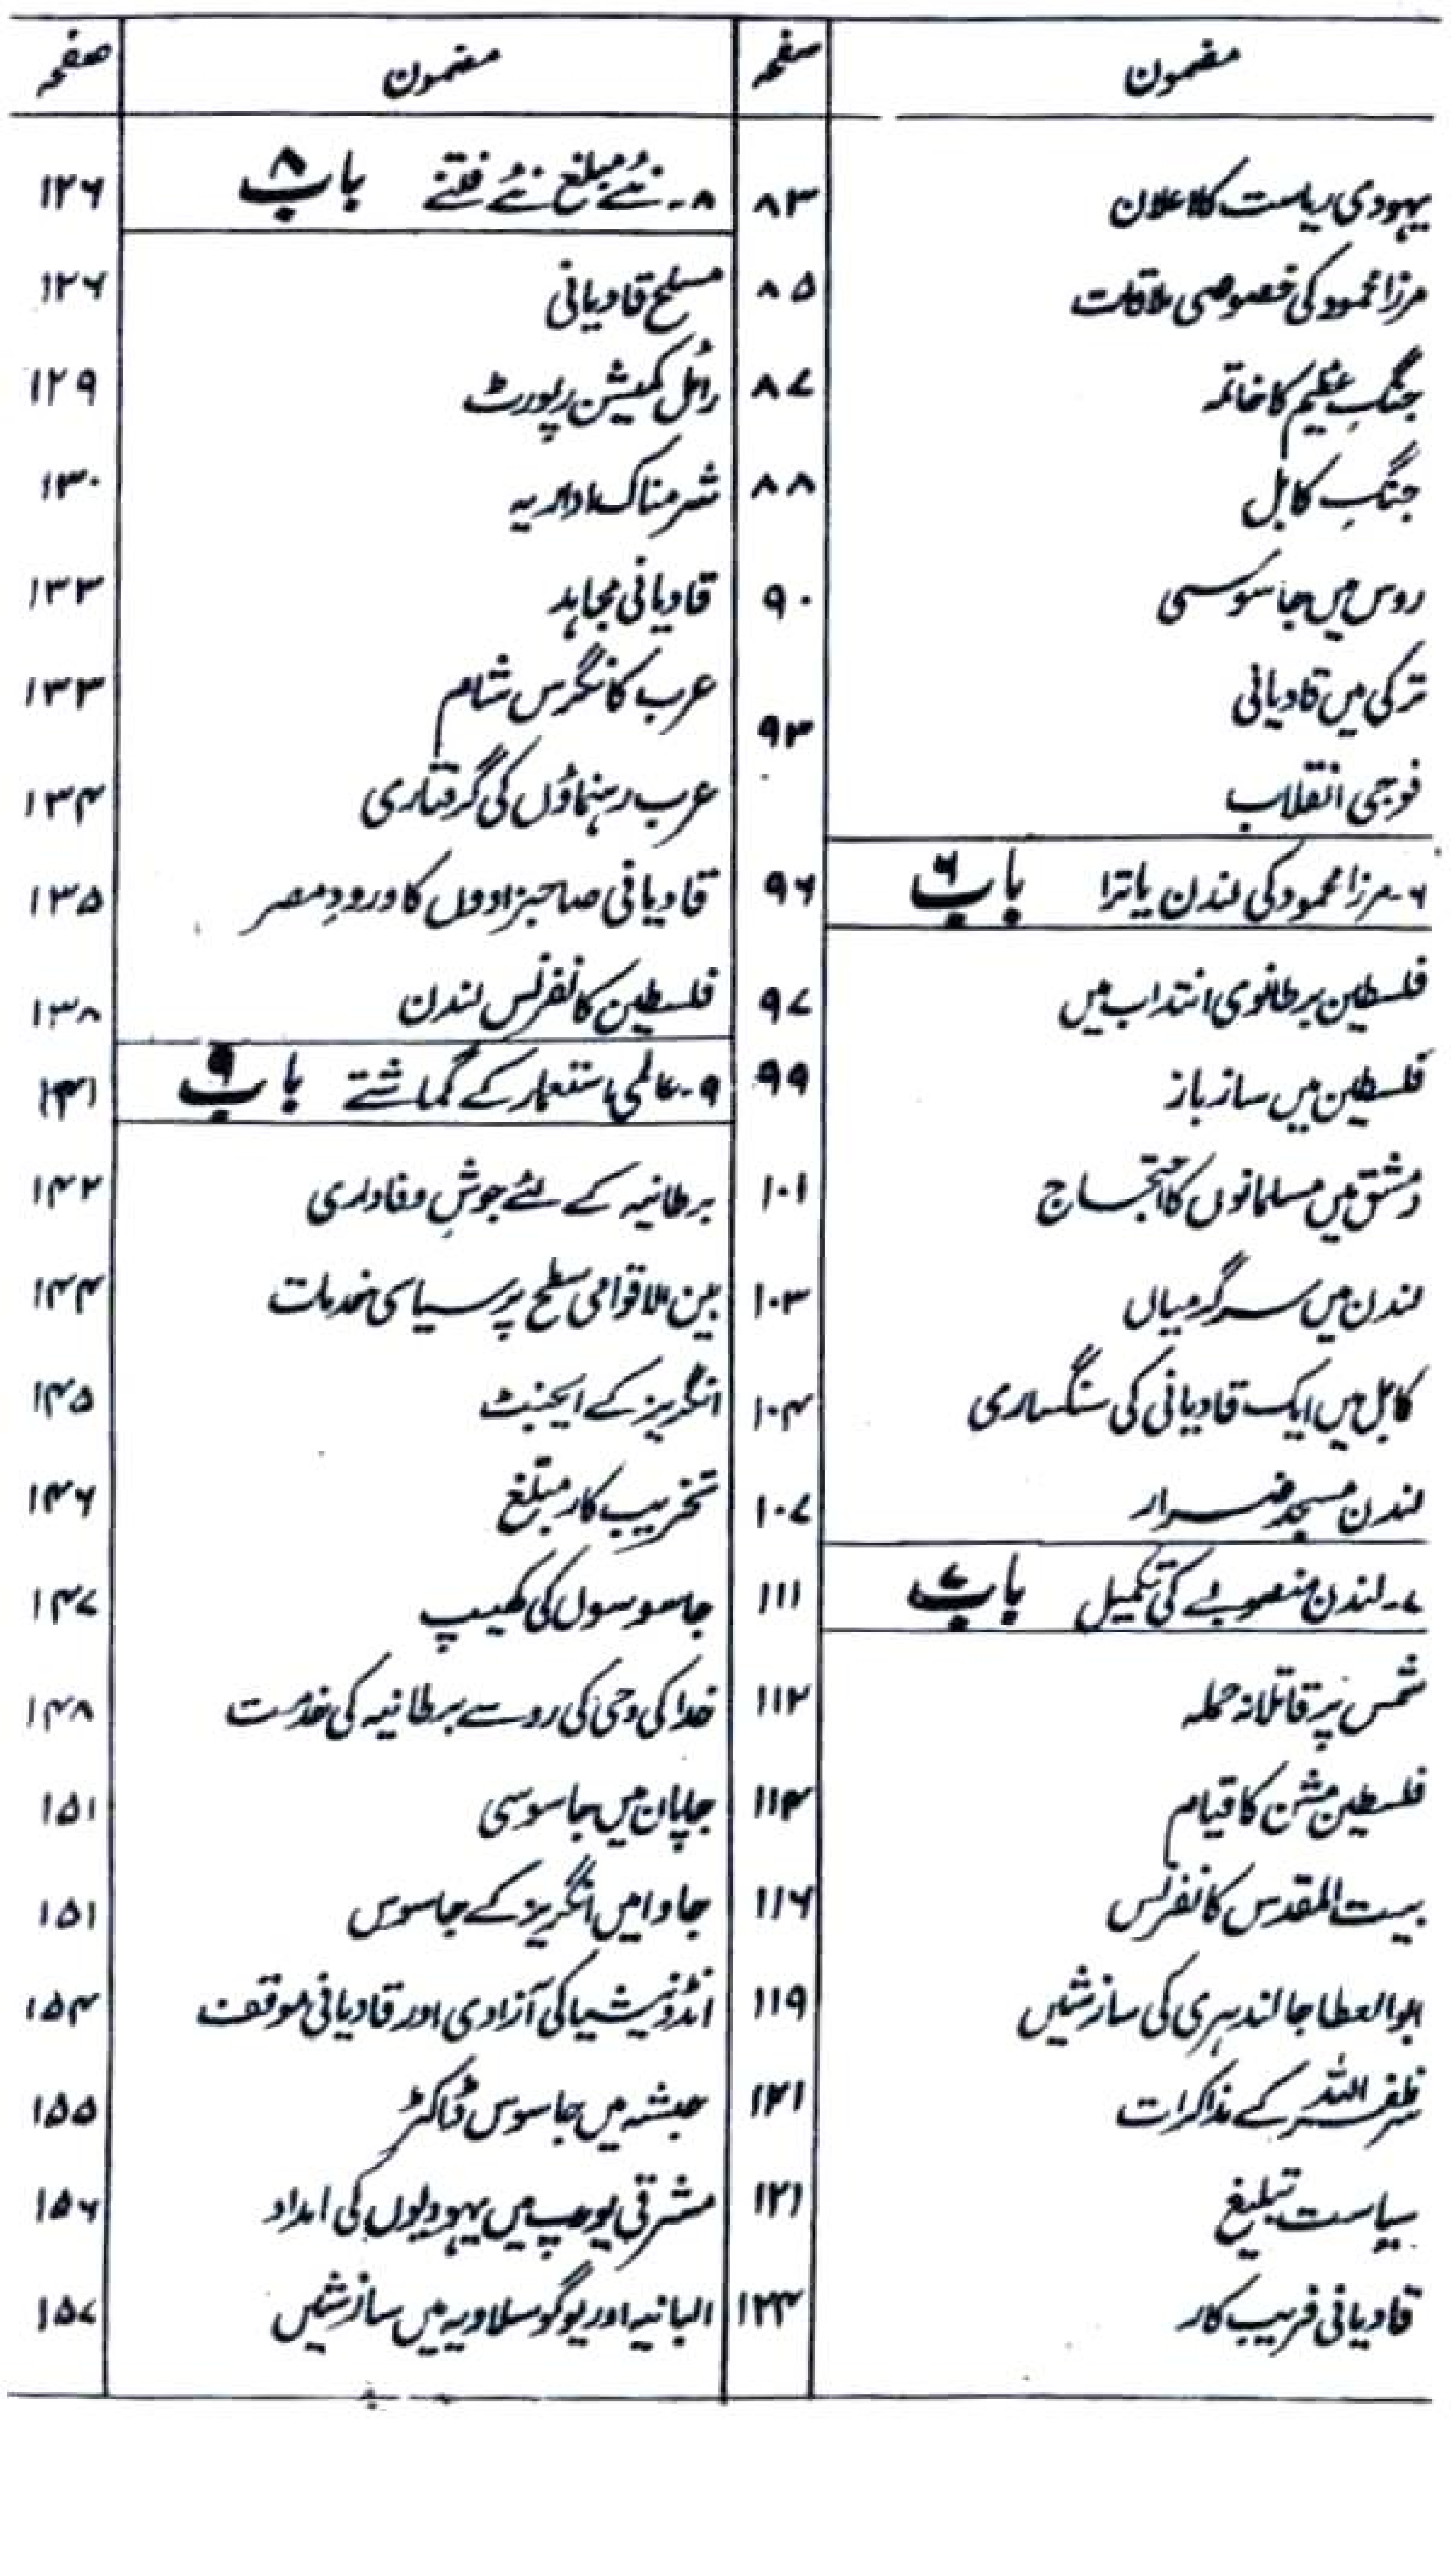 مضمون صفحہ
یہودی ریاست کا اعلان ۸۳
مرزا محمود کی خصوصی ملاقات ۸۵
جنگِ عظیم کا خاتمہ ۸۷
جنگِ کابل ۸۸
روس میں جاسوسی ۹۰
ترکی میں قادیانی ۹۳
فوجی انقلاب
۶۔ مرزا محمود کی لندن یاترا باب ۶ ۹۶
فلسطین برطانوی انتداب میں ۹۷
فلسطین میں ساز باز ۹۹
دمشق میں مسلمانوں کا احتجاج ۱۰۱
لندن میں سرگرمیاں ۱۰۳
کابل میں ایک قادیانی کی سنگساری ۱۰۴
لندن مسجد ضرار ۱۰۷
۷۔ لندن منصوبے کی تکمیل باب ۷ ۱۱۱
شمس پر قاتلانہ حملہ ۱۱۲
فلسطین مشن کا قیام ۱۱۴
بیت المقدس کانفرنس ۱۱۶
ابوالعطا جالندہری کی سازشیں ۱۱۹
سر ظفر اللہ کے مذاکرات ۱۲۱
سیاست تبلیغ ۱۲۱
قادیانی فریب کار ۱۲۴
مضمون صفحہ
۸۔ نئے مبلغ نئے فتنے باب ۸ ۱۲۶
مسلح قادیانی ۱۲۶
رائل کمیشن رپورٹ ۱۲۹
شرمناک اداریہ ۱۳۰
قادیانی مجاہد ۱۳۳
عرب کانگرس شام ۱۳۳
عرب رہنماؤں کی گرفتاری ۱۳۴
قادیانی صاحبزادوں کا ورودِ مصر ۱۳۵
فلسطین کانفرنس لندن ۱۳۸
۹۔ عالمی استعمار کے گماشتے باب ۹ ۱۴۱
برطانیہ کے لئے جوشِ وفاداری ۱۴۲
بین الاقوامی سطح پر سیاسی خدمات ۱۴۴
انگریز کے ایجنٹ ۱۴۵
تخریب کار مبلغ ۱۴۶
جاسوسوں کی کھیپ ۱۴۷
خدا کی وحی کی رو سے برطانیہ کی خدمت ۱۴۸
جاپان میں جاسوسی ۱۵۱
جاوا میں انگریز کے جاسوس ۱۵۱
انڈونیشیا کی آزادی اور قادیانی موقف ۱۵۴
حبشہ میں جاسوس ڈاکٹر ۱۵۵
مشرقی یورپ میں یہودیوں کی امداد ۱۵۶
البانیہ اور یوگوسلاویہ میں سازشیں ۱۵۷